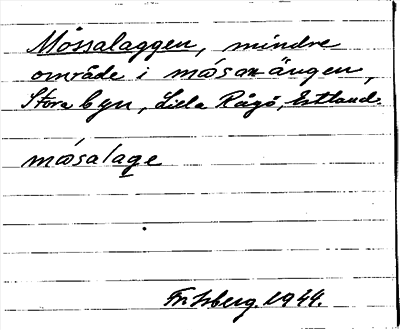 Mossalaggen, mindre
område i mosan ängen,
Stora byn, Lilla Rågö, Estland.
mosalage
1944.